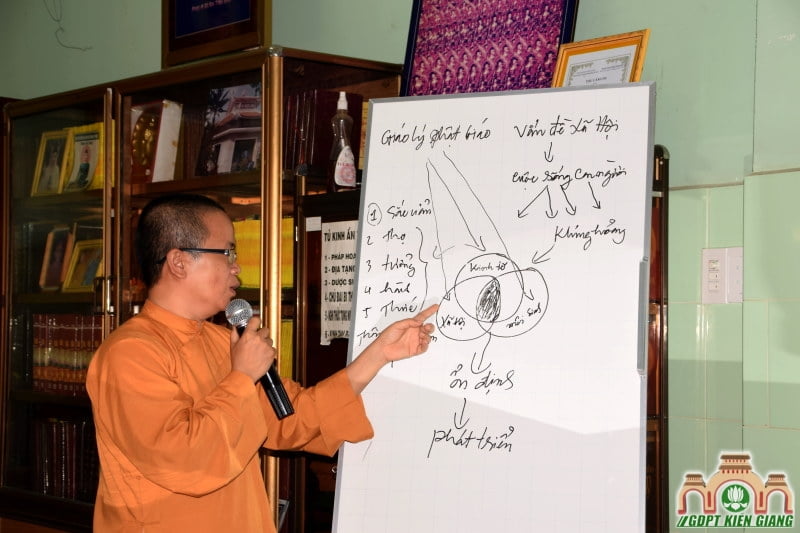 Giáo lý phật giáo
Vấn đề xã Hội
cuộc sống Con người
Khủng hoảng
① Sắc uẩn
2 Thọ
3 tưởng
4 hành
5 Thức
Kinh tế
Xã Hội
môi sinh
ổn định
phát triển
TỦ KINH ẤN
1 - PHÁP HOA
2 - ĐỊA TẠNG
3 - DƯỢC SƯ
4 - CHÚ ĐẠI BI
GĐPT KIÊN GIANG